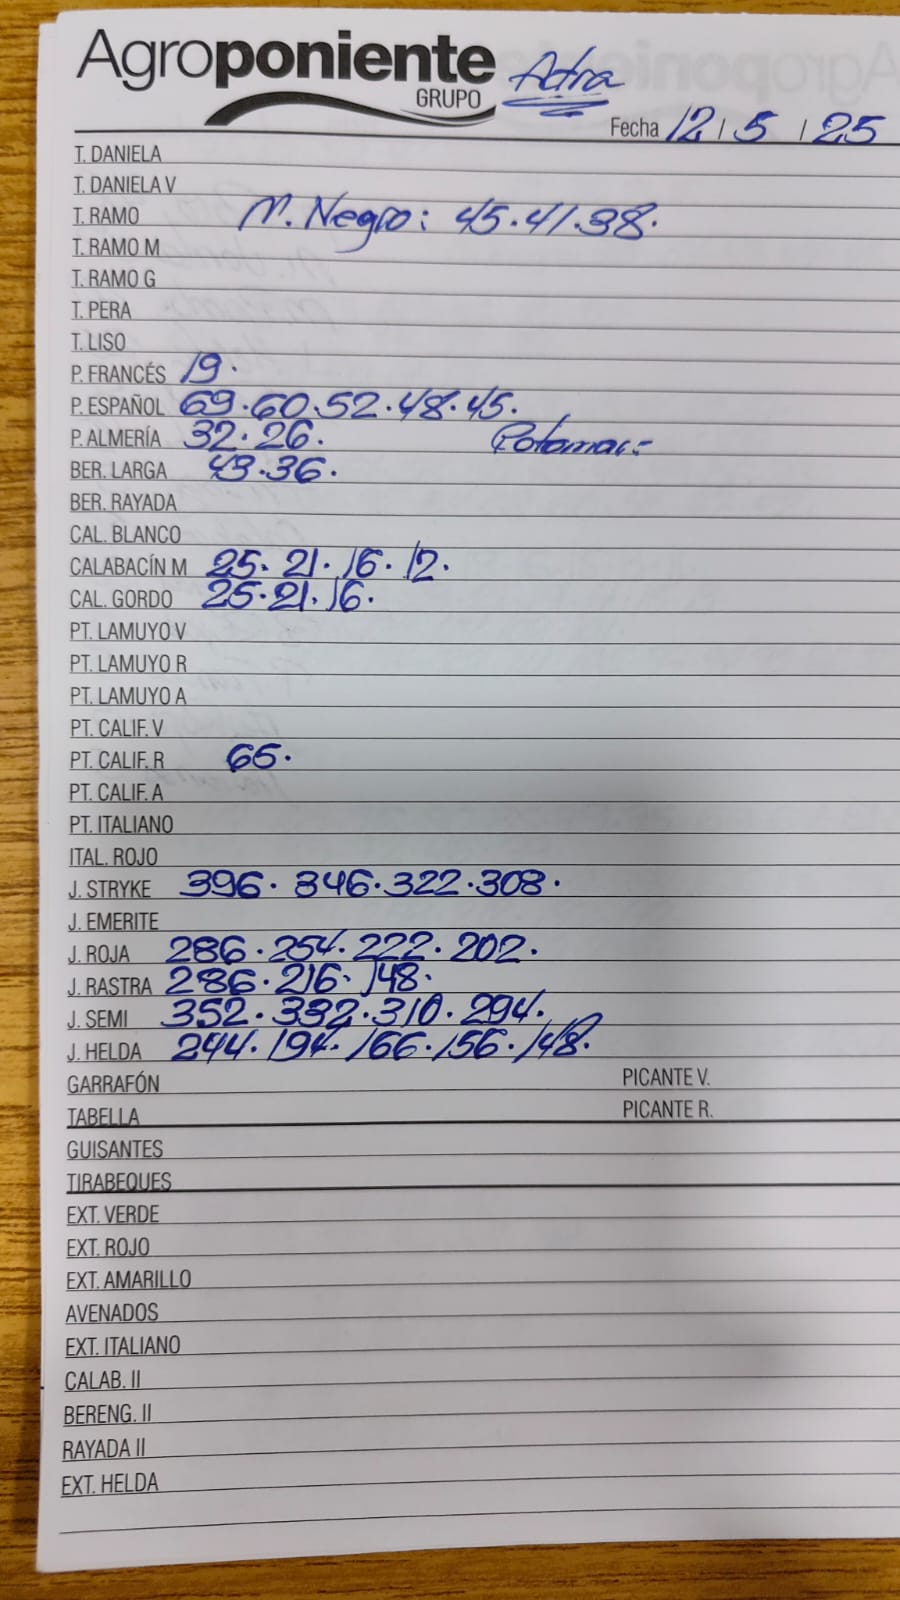 Agroponiente
GRUPO
Adra
Fecha 12 / 5 / 25
T. DANIELA
T. DANIELA V
T. RAMO M. Negro: 45.41.38.
T. RAMO M
T. RAMO G
T. PERA
T. LISO
P. FRANCÉS 19.
P. ESPAÑOL 69.60.52.48.45.
P. ALMERÍA 32.26.
BER. LARGA 49.36.
BER. RAYADA
CAL. BLANCO
CALABACÍN M 25. 21. 16. 12.
CAL. GORDO 25.21.16.
PT. LAMUYO V
PT. LAMUYO R
PT. LAMUYO A
PT. CALIF. V
PT. CALIF. R 65.
PT. CALIF. A
PT. ITALIANO
ITAL. ROJO
J. STRYKE 396. 346.322.308.
J. EMERITE
J. ROJA 286.254.222.202.
J. RASTRA 286.216.148.
J. SEMI 352.332.310.294.
J. HELDA 244.194.166.156.148.
GARRAFÓN PICANTE V.
TABELLA PICANTE R.
GUISANTES
TIRABEQUES
EXT. VERDE
EXT. ROJO
EXT. AMARILLO
AVENADOS
EXT. ITALIANO
CALAB. II
BERENG. II
RAYADA II
EXT. HELDA